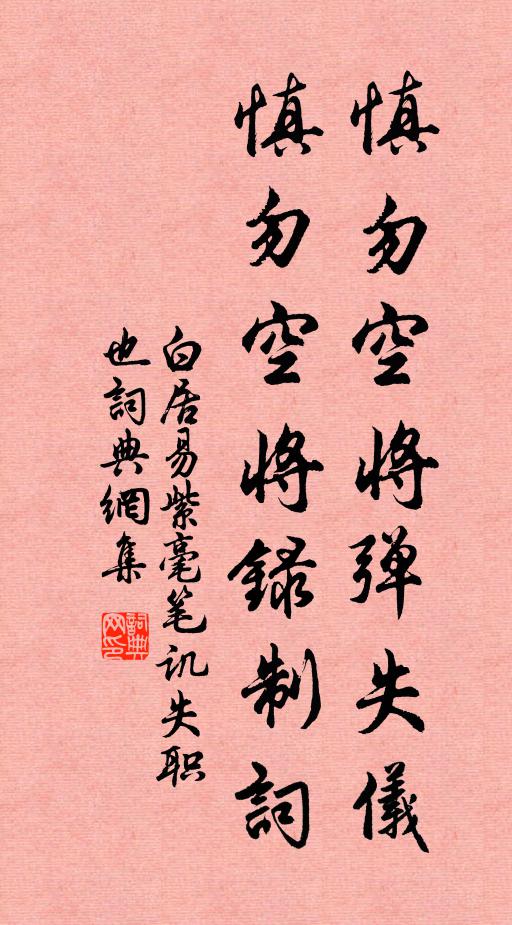 慎勿空將弹失儀
慎勿空將録制詞
白居易紫毫笔讥失职
也詞典網集
詞典
网印